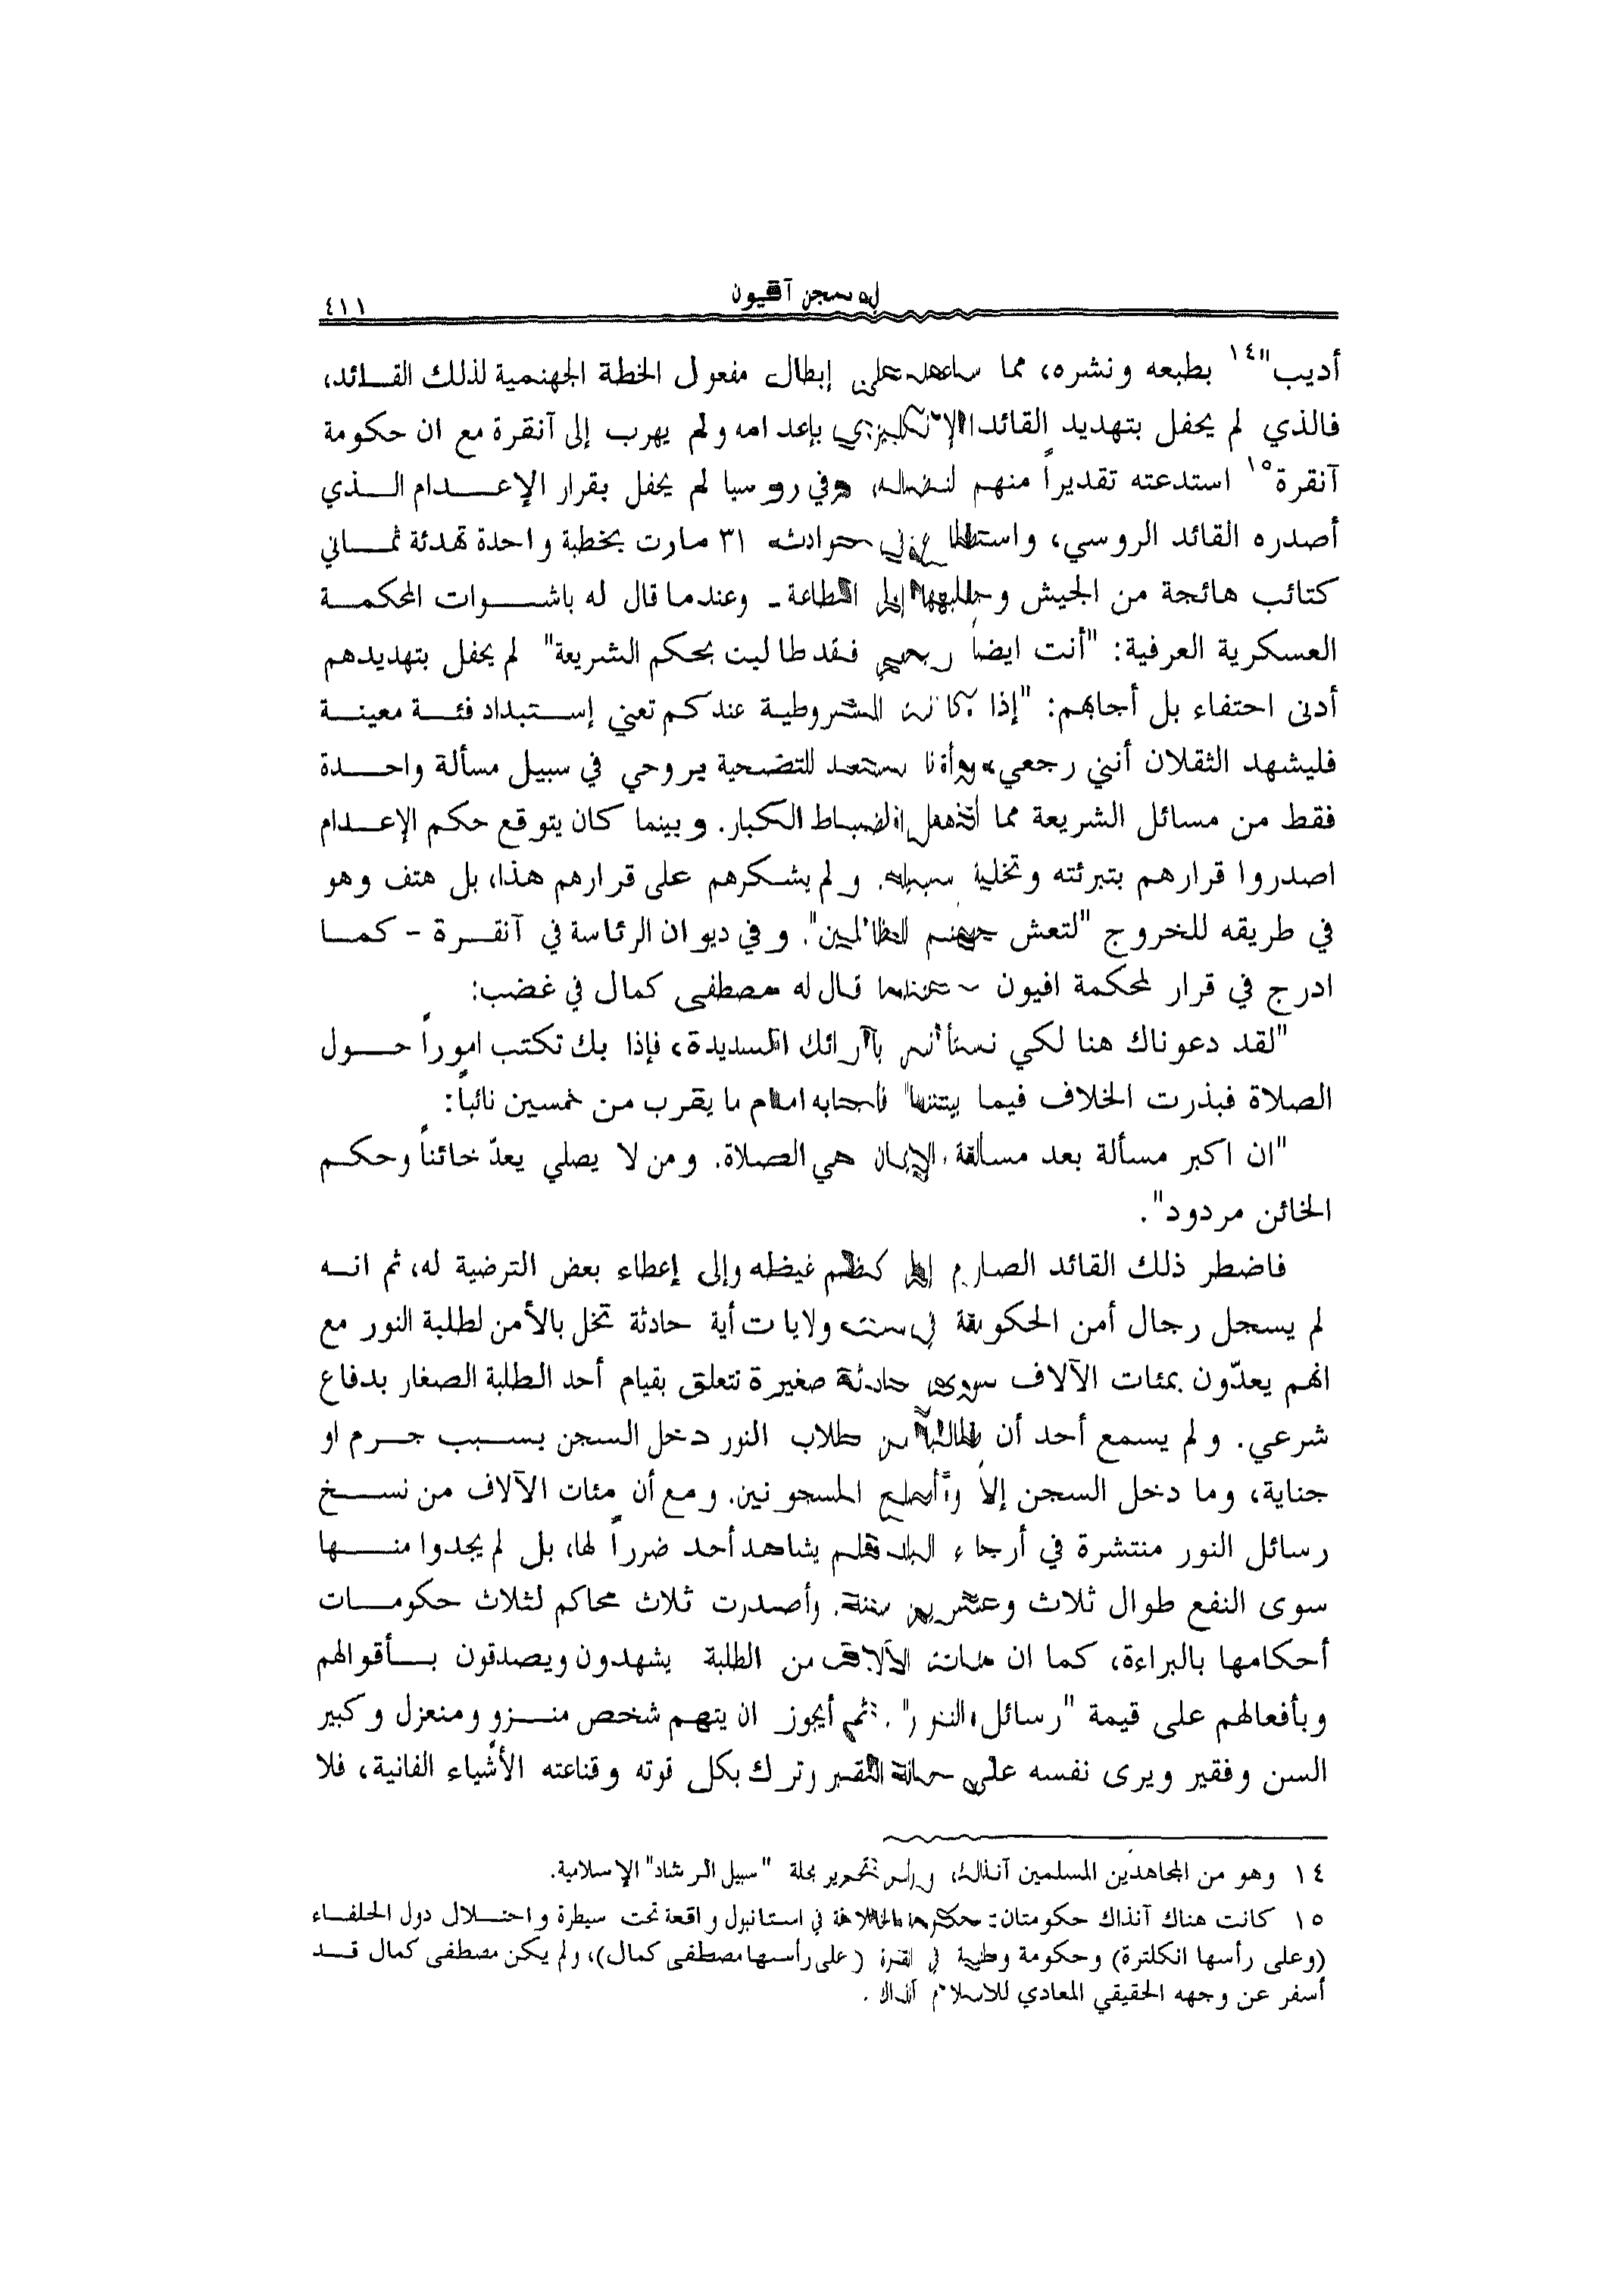 سجن آفيون
٤١١
أديب"١٤ بطبعه ونشره، مما ساعد على إبطال مفعول الخطة الجهنمية لذلك القائد،
فالذي لم يحفل بتهديد القائد الإنكليزي بإعدامه ولم يهرب إلى آنقرة مع ان حكومة
آنقرة١٥ استدعته تقديراً منهم لنضاله، وفي روسيا لم يحفل بقرار الإعدام الذي
أصدره القائد الروسي، واستطاع في حوادث ٣١ مارت بخطبة واحدة تهدئة ثماني
كتائب هائجة من الجيش وجلبها إلى الطاعة. وعندما قال له باشوات المحكمة
العسكرية العرفية: "أنت ايضاً رجعي فقد طالبت بحكم الشريعة" لم يحفل بتهديدهم
أدنى احتفاء بل أجابهم: "إذا كانت المشروطية عندكم تعني إستبداد فئة معينة
فليشهد الثقلان أنني رجعي، وأنا مستعد للتضحية بروحي في سبيل مسألة واحدة
فقط من مسائل الشريعة مما أذهل الضباط الكبار. وبينما كان يتوقع حكم الإعدام
اصدروا قرارهم بتبرئته وتخلية سبيله. ولم يشكرهم على قرارهم هذا، بل هتف وهو
في طريقه للخروج "لتعش جهنم للظالمين". وفي ديوان الرئاسة في آنقرة - كما
ادرج في قرار لمحكمة افيون - عندما قال له مصطفى كمال في غضب:
"لقد دعوناك هنا لكي نستأنس بآرائك السديدة، فإذا بك تكتب اموراً حول
الصلاة فبذرت الخلاف فيما بيننا" فأجابه امام ما يقرب من خمسين نائباً:
"ان اكبر مسألة بعد مسألة الإيمان هي الصلاة. ومن لا يصلي يعدّ خائناً وحكم
الخائن مردود".
فاضطر ذلك القائد الصارم إلى كظم غيظه وإلى إعطاء بعض الترضية له، ثم انه
لم يسجل رجال أمن الحكومة في ست ولايات أية حادثة تخل بالأمن لطلبة النور مع
انهم يعدّون بمئات الآلاف سوى حادثة صغيرة تتعلق بقيام أحد الطلبة الصغار بدفاع
شرعي. ولم يسمع أحد أن طالباً من طلاب النور دخل السجن بسبب جرم او
جناية، وما دخل السجن إلا وأصلح المسجونين. ومع أن مئات الآلاف من نسخ
رسائل النور منتشرة في أرجاء البلاد فلم يشاهد أحد ضرراً لها، بل لم يجدوا منها
سوى النفع طوال ثلاث وعشرين سنة. وأصدرت ثلاث محاكم لثلاث حكومات
أحكامها بالبراءة، كما ان مئات الآلاف من الطلبة يشهدون ويصدقون بأقوالهم
وبأفعالهم على قيمة "رسائل النور". ثم أيجوز ان يتهم شخص منزوٍ ومنعزل وكبير
السن وفقير ويرى نفسه على حافة القبر وترك بكل قوته وقناعته الأشياء الفانية، فلا
١٤ وهو من المجاهدين المسلمين آنذاك، ورأس تحرير مجلة "سبيل الرشاد" الإسلامية.
١٥ كانت هناك آنذاك حكومتان: حكومة الخلافة في استانبول واقعة تحت سيطرة واحتلال دول الحلفاء
(وعلى رأسها انكلترة) وحكومة وطنية في انقرة (على رأسها مصطفى كمال)، ولم يكن مصطفى كمال قد
أسفر عن وجهه الحقيقي المعادي للاسلام آنذاك.